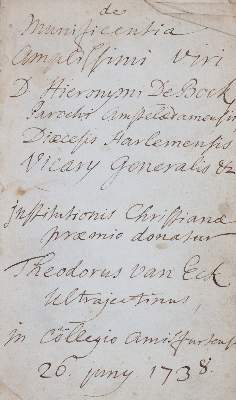 de
Munificentia
Amplissimi Viri
D. Hieronymi De Bock
Parochi Amstelodamensis
Diœcesis Harlemensis
Vicarij Generalis &c
institutionis Christianæ
præmio donatur
Theodorus van Eck
Ultrajectinus,
in collegio Amisfurtensi
26. juny 1738.